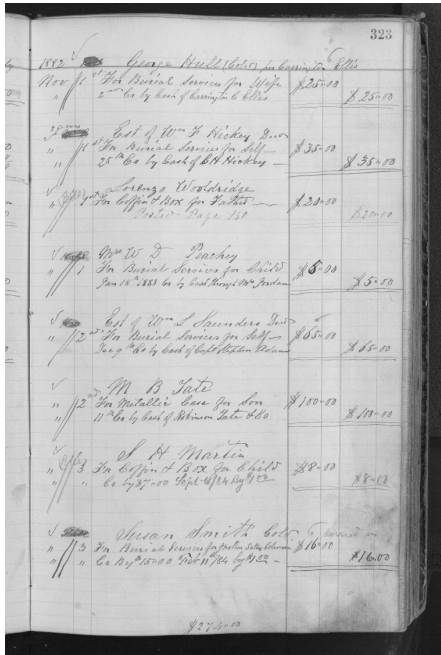 323
1882 George Hull (Cold) for Carrington Ellis
Nov 1st For Burial Services for Wife $25-00
" 2nd Co by Cash of Carrington C Ellis $25-00
Est of Wm H Hickey Decd
" 1st For Burial Services for Self $35-00
" 25th Co by Cash of C H Hickey $35-00
Lorenzo Wooldridge
" 1st For Coffin & Box for Father $20-00
Posted Page 150 $20-00
Mrs W D Peachey
" 1 For Burial Services for Child $5-00
" Jan 18th 1883 Co by Cash through Mr Jordan $5-00
Est of Wm L Saunders Decd
" 2nd For Burial Services for Self $65-00
" Co by Cash of Capt Stephen Adams $65-00
M B Tate
" 2nd For Metallic Case for Son $100-00
" 11th Co by Cash of Robinson Tate & Co $100-00
S H Martin
" 3 For Coffin & Box for Child $8-00
" Co by $7-00 Sept 18/84 By $1.00 $8-00
Susan Smith Cold
" 3 For Burial Services for $16-00
" Co By $15-00 Feb 11/84 by $1.00 $16.00
$274-00